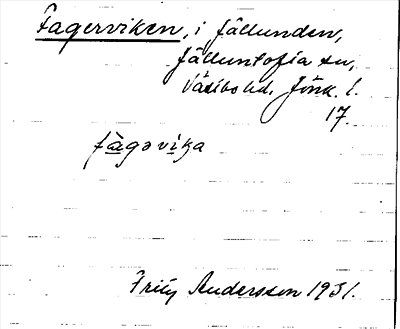 Fagerviken, i Jällunden,
Jälluntofta sn,
Västbo hd. Jönk. l.
17.
fàgəvika
Fritz Andersson 1931.